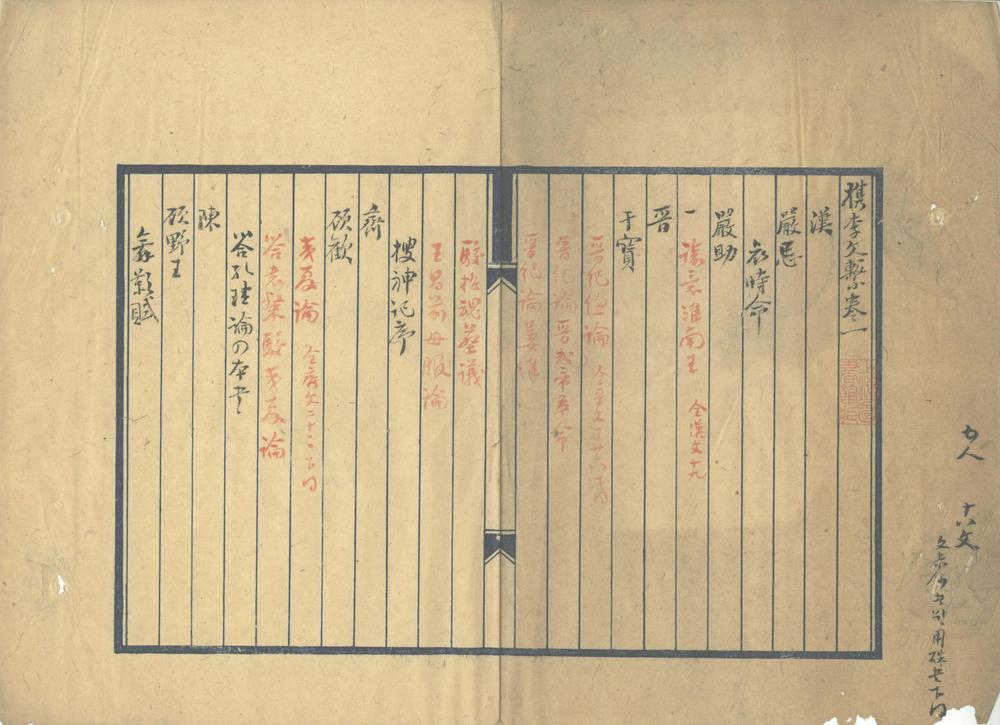 檇李文繫卷一
漢
嚴忌
哀時命
嚴助
諭意淮南王 全漢文十九
晉
干寶
晉紀總論 全晉文百廿七下同
晉紀論晉武帝革命
晉紀論姜維
駁招魂葬議
王昌前母服論
搜神記序
齊
顧歡
夷夏論 全齊文二十二下同
答袁粲駁夷夏論
答孔 論
陳
顧野王
舞影賦
十六文
用硃書下同